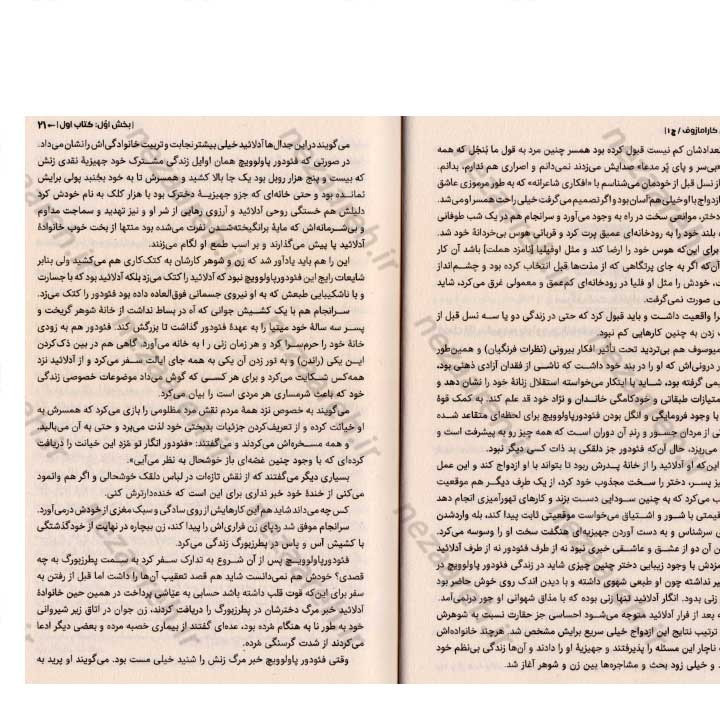 کارامازوف / ج ۱|
تعدادشان کم نیست قبول کرده بود همسر چنین مرد به قول ما بُنجُل که همه
«بی‌سر و پای پُر مدعا» صدایش می‌زدند نمی‌دانم و اصراری هم ندارم، بدانم.
از نسل قبل از خودمان می‌شناسم با «افکاری شاعرانه» که به طور مرموزی عاشق
ازدواج با او خیلی هم آسان بود و اگر تصمیم می‌گرفت خیلی راحت همسر او می‌شد.
دختر، موانعی سخت در راه به وجود می‌آورد و سرانجام هم در یک شب طوفانی
بلند خود را به رودخانه‌ای عمیق پرت کرد و قربانی هوس بی‌خردانهٔ خود شد.
برای این‌که هوس خود را ارضا کند و مثل اوفیلیا [نامزد هملت] باشد آن کار
آن‌که اگر به جای پرتگاهی که از مدت‌ها قبل انتخاب کرده بود و چشم‌انداز
خودش را مثل او فلیا در رودخانه‌ای کم‌عمق و معمولی غرق می‌کرد، شاید
صورت نمی‌گرفت.
واقعیت داشت و باید قبول کرد که حتی در زندگی دو یا سه نسل قبل از
زدن به چنین کارهایی کم نبود.
میوسوف هم بی‌تردید تحت تأثیر افکار بیرونی (نظرات فرنگیان) و همین‌طور
درونی‌اش که او را در بند خود داشت که ناشی از فقدان آزادی ذهنی بود،
گرفته بود، شاید با ابتکار می‌خواسته استقلال زنانهٔ خود را نشان دهد و
امتیازات طبقاتی و خودکامگی خاندان و نژاد خود قد علم کند. به کمک قوهٔ
با وجود فرومایگی و انگل بودن فئودورپاولوویچ برای لحظه‌ای متقاعد شده
از مردان جسور و رندِ آن دوران است که همه چیز رو به پیشرفت است و
می‌ریزد، حال آن‌که فئودور جز دلقکی بد ذات کسی دیگر نبود.
این‌که او آدلائید را از خانهٔ پدرش ربود تا بتواند با او ازدواج کند و این عمل
پسر، دختر را سخت مجذوب خود کرد، از یک طرف دیگر هم موقعیت
می‌کرد که به چنین سودایی دست بزند و کارهای تهورآمیزی انجام دهد
قیمتی با شور و اشتیاق می‌خواست موقعیتی ثابت پیدا کند، بله واردشدن
سرشناس و به دست آوردن جهیزیه‌ای هنگفت سخت او را وسوسه می‌کرد.
آن دو از عشق و عاشقی خبری نبود نه از طرف فئودور نه از طرف آدلائید
با وجود زیبایی دختر چنین چیزی شاید در زندگی فئودورپاولوویچ در
نداشته چون او طبعی شهوی داشته و با دیدن اندک روی خوش حاضر بود
زنی بدود. انگار آدلائید تنها زنی بوده که با مذاق شهوانی او جور درنمی‌آمد.
بعد از فرار آدلائید متوجه می‌شود احساسی جز حقارت نسبت به شوهرش
ترتیب نتایج این ازدواج خیلی سریع برایش مشخص شد. هرچند خانواده‌اش
ناچار این مسئله را پذیرفتند و جهیزیهٔ او را دادند و آن‌ها زندگی بی‌نظم خود
و خیلی زود بحث و مشاجره‌ها بین زن و شوهر آغاز شد.
|بخش اوّل: کتاب اول|← ۲۱
می‌گویند در این جدال‌ها آدلائید خیلی بیشتر نجابت و تربیت خانوادگی‌اش را نشان می‌داد.
در صورتی که فئودور پاولوویچ همان اوایل زندگی مشترک خود جهیزیهٔ نقدی زنش
که بیست و پنج هزار روبل بود یک جا بالا کشید و همسرش تا به خود بجُنبد پولی برایش
نمانده بود و حتی خانه‌ای که جزو جهیزیهٔ دخترک بود با هزار کلک به نام خودش کرد
دلیلش هم خستگی روحی آدلائید و آرزوی رهایی از شر او و نیز تهدید و سماجت مداوم
و بی‌شرمانه‌اش که مایهٔ برانگیخته‌شدن نفرت می‌شده بود منتها از بخت خوب خانوادهٔ
آدلائید پا پیش می‌گذارند و بر اسب طمع او لگام می‌زنند.
این را هم باید یادآور شد که زن و شوهر کارشان به کتک‌کاری هم می‌کشید ولی بنابر
شایعات رایج این فئودورپاولوویچ نبود که آدلائید را کتک می‌زد بلکه آدلائید بود که با جسارت
و با ناشکیبایی طبعش که به او نیروی جسمانی فوق‌العاده داده بود فئودور را کتک می‌زد.
سرانجام هم با یک کشیش جوانی که آه در بساط نداشت از خانهٔ شوهر گریخت و
پسر سه سالهٔ خود میتیا را به عهدهٔ فئودور گذاشت تا بزرگش کند. فئودور هم به زودی
خانهٔ خود را حرم‌سرا کرد و هر زمان زنی را به خانه می‌آورد، گاهی هم در بین دَک‌کردن
این یکی (راندن) و به تور زدن آن یکی به همه جای ایالت سفر می‌کرد و از آدلائید نزد
همه‌کس شکایت می‌کرد و برای هر کسی که گوش می‌داد موضوعات خصوصی زندگی
خود که باعث شرمساری هر مردی است را بیان می‌کرد.
می‌گویند به خصوص نزد همهٔ مردم نقش مرد مظلومی را بازی می‌کرد که همسرش به
او خیانت کرده و از تعریف‌کردن جزئیات بدبختی خود لذت می‌برد و حتی به آن می‌بالید.
و همه مسخره‌اش می‌کردند و می‌گفتند: «فئودور انگار تو مُزد این خیانت را دریافت
کرده‌ای که با وجود چنین غصه‌ای باز خوشحال به نظر می‌آیی».
بسیاری دیگر می‌گفتند که از نقش تازه‌ات در لباس دلقک خوشحالی و اگر هم وانمود
می‌کنی از خندهٔ خود خبر نداری برای این است که خنده‌دارترش کنی.
کس چه می‌داند شاید هم این کارهایش از روی سادگی و سبک مغزی از خودش درمی‌آورد.
سرانجام موفق شد ردپای زن فراری‌اش را پیدا کند، زن بیچاره در نهایت از خودگذشتگی
با کشیش آس و پاس در پطرزبورگ زندگی می‌کرد.
فئودورپاولوویچ پس از آن شروع به تدارک سفر کرد به سمت پطرزبورگ به چه
قصدی؟ خودش هم نمی‌دانست شاید هم قصد تعقیب آن‌ها را داشت اما قبل از رفتن به
سفر برای این‌که قوت قلب داشته باشد حسابی به عیّاشی پرداخت در همین حین خانوادهٔ
آدلائید خبر مرگ دخترشان در پطرزبورگ را دریافت کردند، زن جوان در اتاق زیر شیروانی
خود به طور نا به هنگام مُرده بود، عده‌ای گفتند از بیماری حصبه مرده و بعضی دیگر ادعا
می‌کردند از شدت گرسنگی مُرده.
وقتی فئودور پاولوویچ خبر مرگ زنش را شنید خیلی مست بود. می‌گویند او پرید به